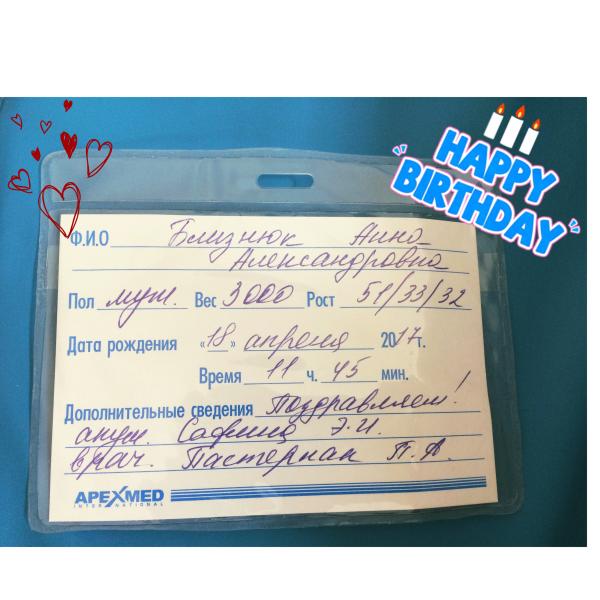 HAPPY
BIRTHDAY
Ф.И.О Близнюк Анна
Александровна
Пол муж. Вес 3000 Рост 51/33/32
Дата рождения «18» апреля 2017г.
Время 11 ч. 45 мин.
Дополнительные сведения Поздравляем!
акуш. Сафина Э.И.
врач. Пастернак П.А.
APEXMED
INTERNATIONAL